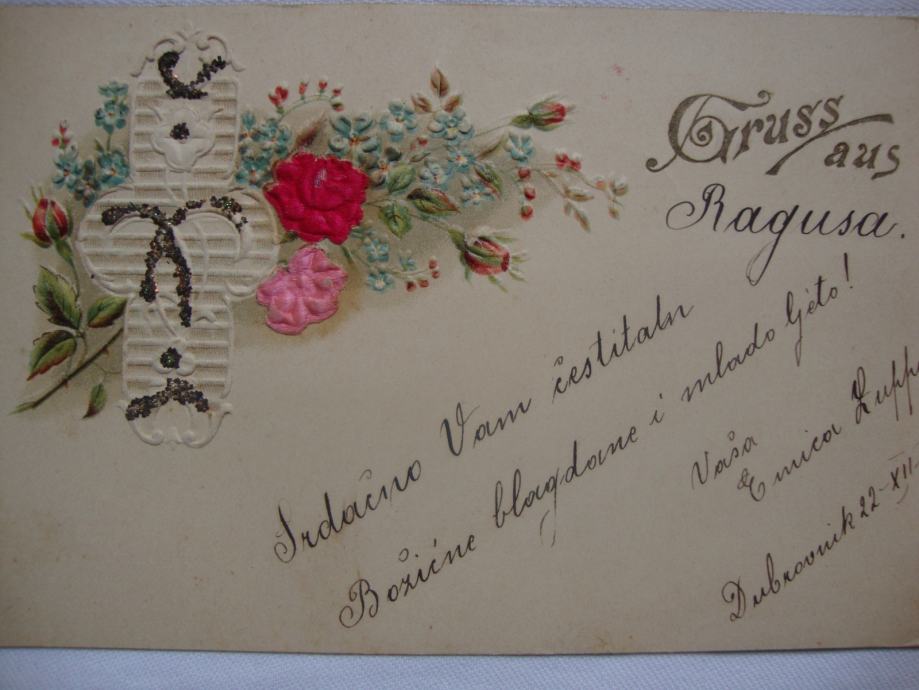 Gruss
aus
Ragusa.
Srdačno Vam čestitam
Božićne blagdane i mlado ljeto!
Vaša
Emica Zupp
Dubrovnik 22-XII-